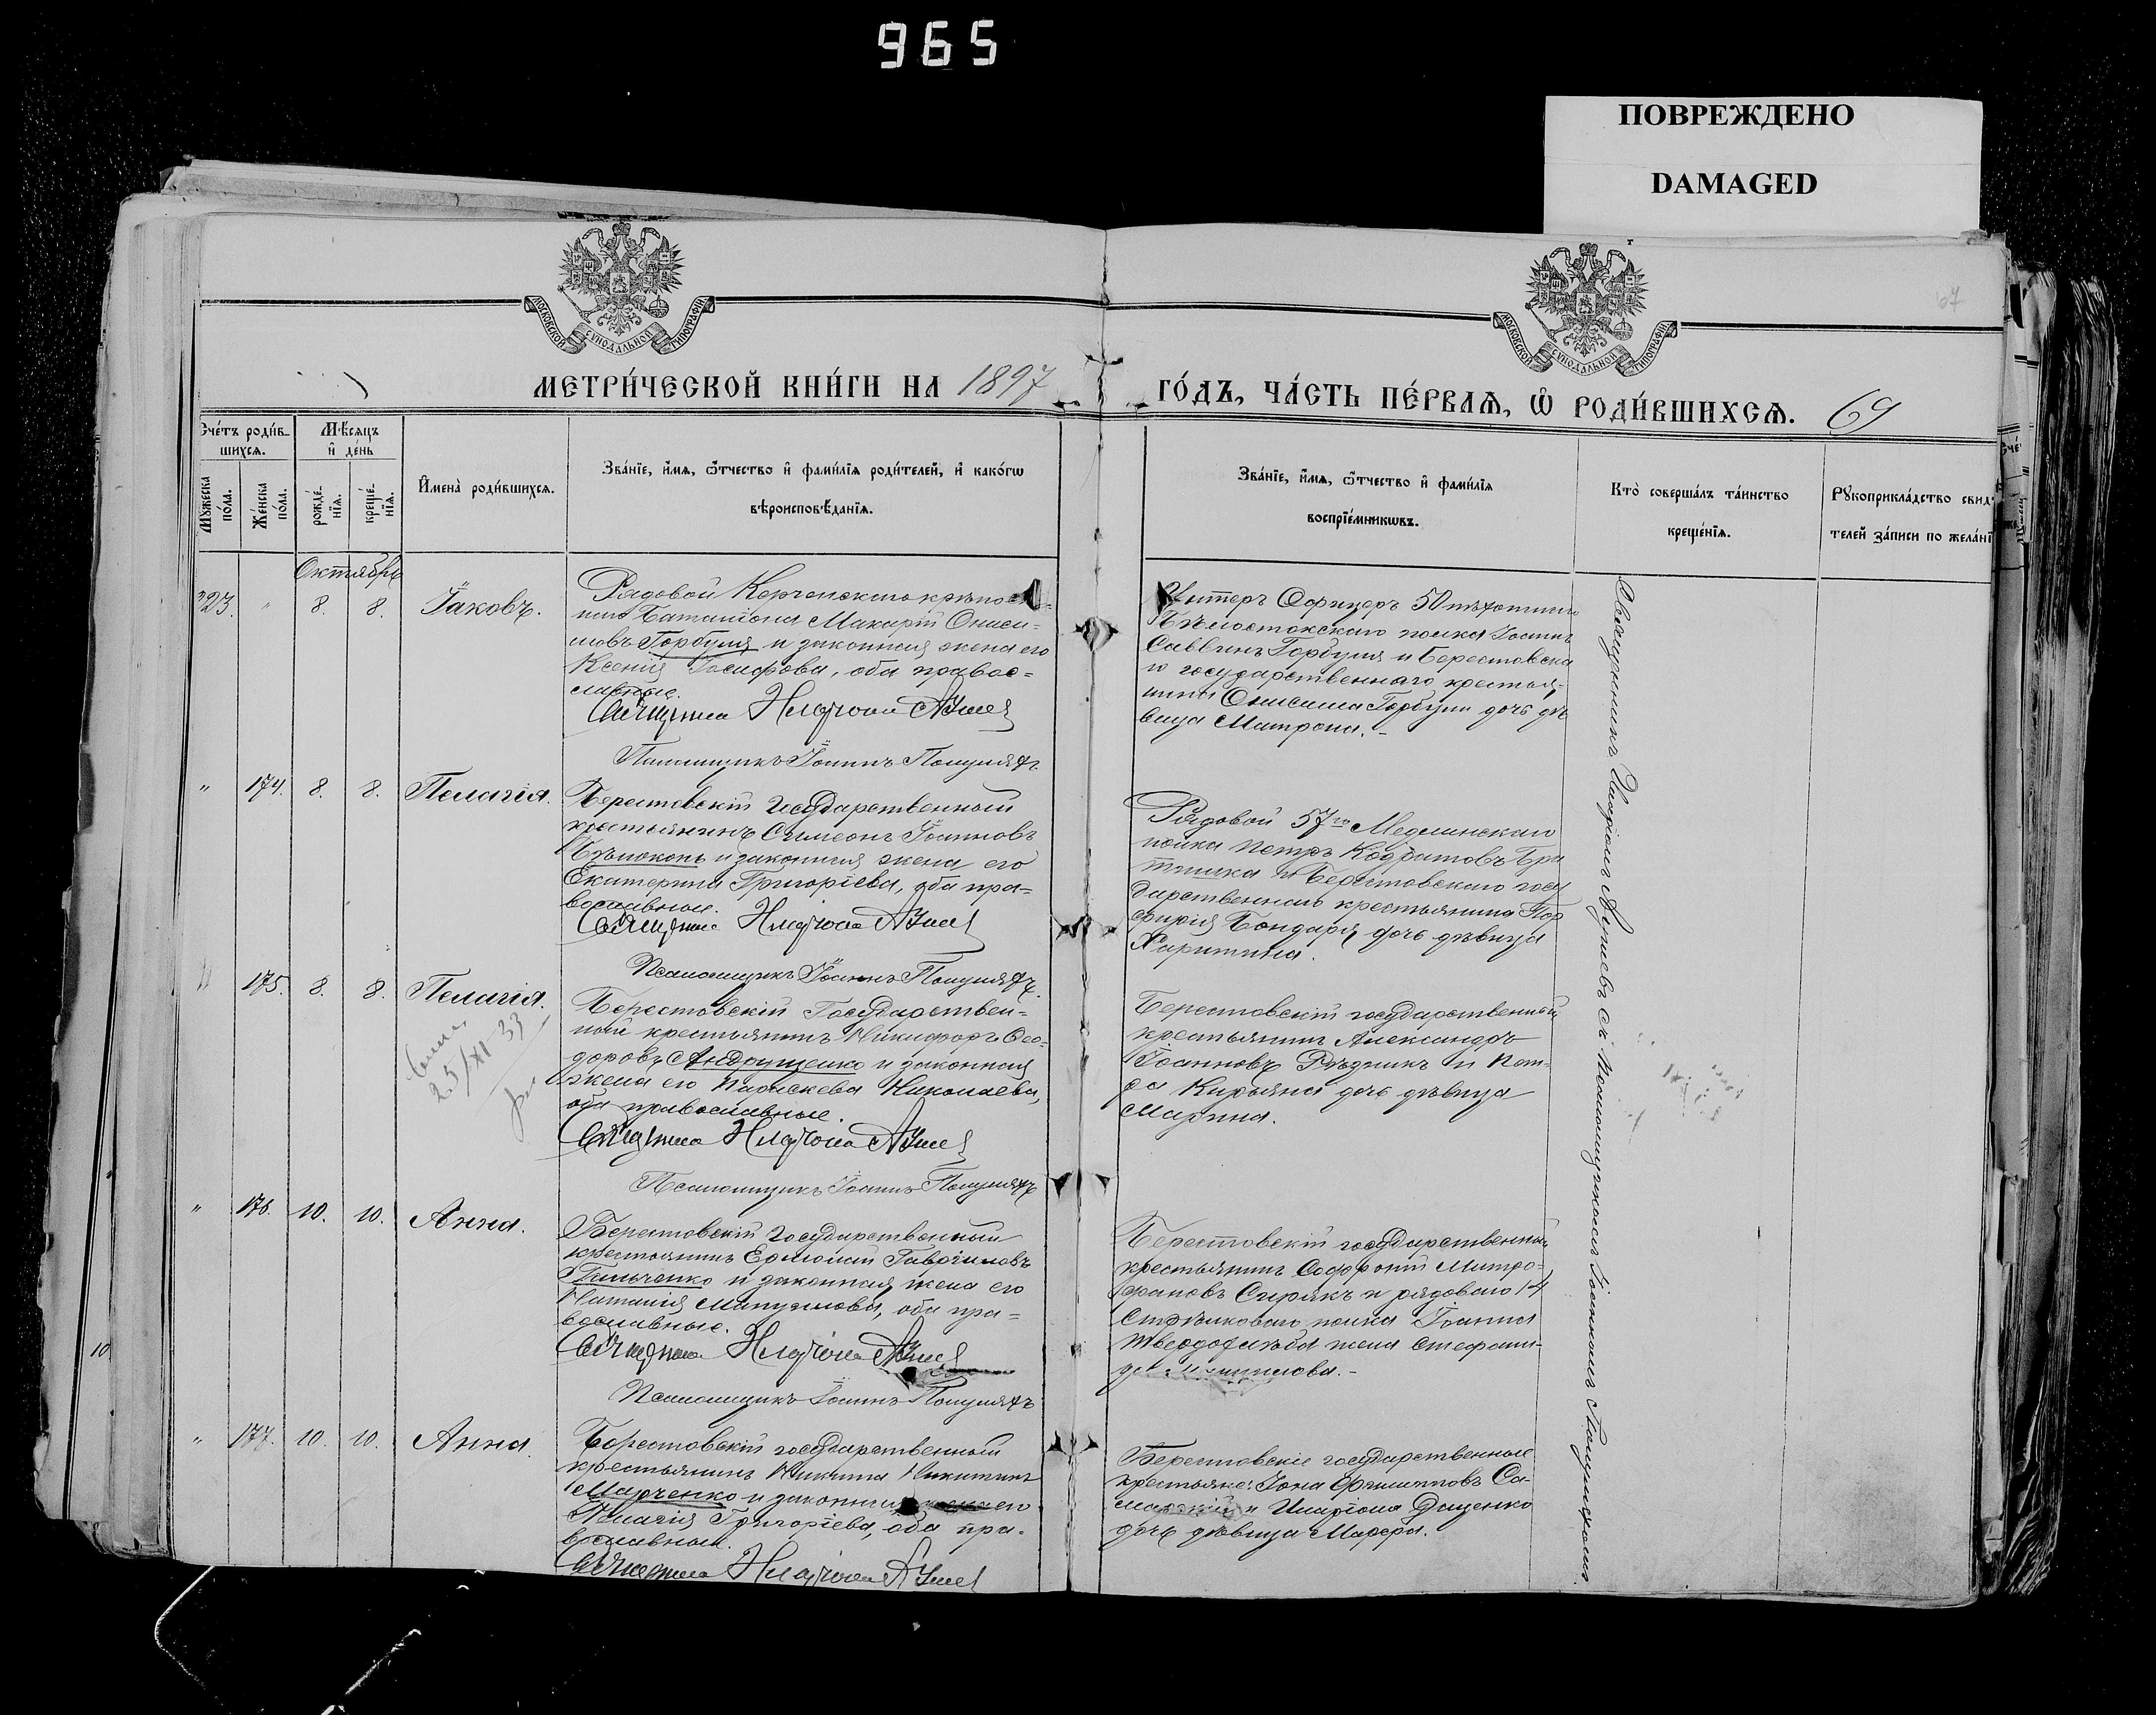 965
ПОВРЕЖДЕНО
DAMAGED
МОСКОВСКОЙ СУНОДАЛЬНОЙ ТИПОГРАФІИ
МОСКОВСКОЙ СУНОДАЛЬНОЙ ТИПОГРАФІИ
67
МЕТРИ́ЧЕСКОЙ КНИ́ГИ НА 1897
ГО́ДЪ, ЧА́СТЬ ПЕ́РВАѦ, Ѡ҆ РОДИ́ВШИХСѦ. 69
Сче́тъ роди́в-
шихсѧ.
Мѣ́сяцъ
и҆ де́нь
Мꙋ́жеска
по́ла.
Же́нска
по́ла.
рожде́-
нїѧ.
креще́-
нїѧ.
И҆мена̀ роди́вшихсѧ.
Зва́нїе, и҆́мѧ, ѻ҆́тчество и҆ фами́лїѧ роди́телей, и҆ како́гѡ
вѣроисповѣ́данїѧ.
Зва́нїе, и҆́мѧ, ѻ҆́тчество и҆ фами́лїѧ
воспрїе́мникѡвъ.
Кто̀ соверша́лъ та́инство
креще́нїѧ.
Рꙋкоприкла́дство свид
телей за́писи по жела́нї
Октябрь
323. " 8. 8. Іаковъ.
Рядовой Керченскаго крѣпо
наго Баталіона Макарій Ониси-
мовъ Горбуля и законная жена его
Ксенія Іосифова, оба правос-
лавные.
Священникъ Иларіонъ
Псаломщикъ Іоаннъ
Унтеръ Офицеръ 50 пѣхотнаго
Бѣлостокскаго полка Іоаннъ
Саввинъ Горбуля и Берестовска
го государственнаго крестья-
нина Онисима Горбули дочь дѣ
вица Матрона.-
" 174. 8. 8. Пелагія.
Берестовскій государственный
крестьянинъ Симеонъ Іоанновъ
Бѣлоконь и законная жена его
Екатерина Григоріева, оба пра-
вославные.
Священникъ Иларіонъ
Псаломщикъ Іоаннъ
Рядовой 57го Модлинскаго
полка Петръ Кодратовъ
и Берестовскаго госу
дарственнаго крестьянина Пор
фирія Бондаря дочь дѣвица
Харитина.
" 175. 8. 8. Пелагія.
25/XI 33
Берестовскій Государствен-
ный крестьянинъ Никифоръ Ѳео-
доровъ Андрущенко и законная
жена его Параскева Николаева,
оба православные.
Священникъ Иларіонъ
Псаломщикъ Іоаннъ
Берестовскій государственный
крестьянинъ Александръ
Іоанновъ Рѣзникъ и
Кирьяна дочь дѣвица
Марина.
" 176. 10. 10. Анна.
Берестовскій государственный
крестьянинъ Ермолай Гавріиловъ
Гильченко и законная жена его
Наталія Мануилова, оба пра-
вославные.
Священникъ Иларіонъ
Псаломщикъ Іоаннъ
Берестовскій государственный
крестьянинъ Софроній Митро-
фановъ Сирякъ и рядоваго 14
Стрѣлковаго полка Іоанна
Твердохлѣба жена Стефани-
да
10
" 177. 10. 10. Анна.
Берестовскій государственный
крестьянинъ Никита Никитинъ
Марченко и законная жена его
Пелагія Григоріева, оба пра-
вославные.
Священникъ Иларіонъ
Берестовскіе государственные
крестьяне: Іона Филиповъ Са-
и Иларіона Дащенко
дочь дѣвица Марфа.
Священникъ Иларіонъ съ Псаломщикомъ Іоанномъ